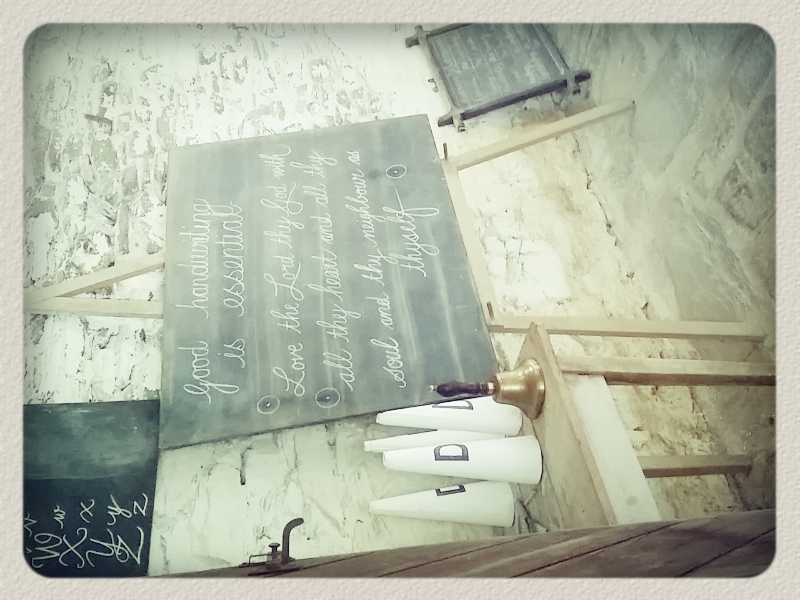 Good handwriting
is essential
Love the Lord thy God with
all thy heart and all thy
soul and thy neighbour as
thyself
W w
X x
Y y
Z z
D
D
D